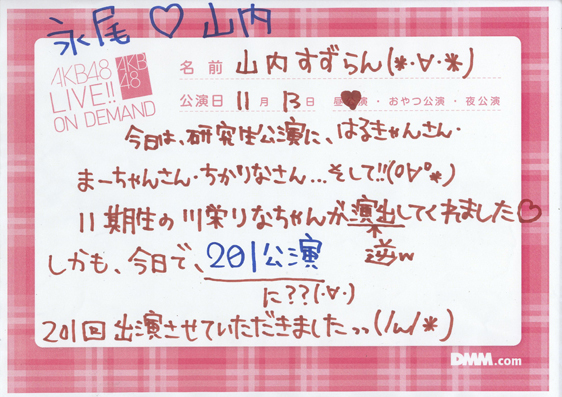 永尾♡山内
AKB48
LIVE!!
ON DEMAND
AKB
48
名前 山内すずらん(*・∀・*)
公演日 11月 13日 昼公演・おやつ公演・夜公演
今日は、研究生公演に、はるきゃんさん・
まーちゃんさん・ちかりなさん…そして!!(o∀o*)
11期生の川栄りなちゃんが演出してくれました♡
逆w
しかも、今日で、201公演
に??(・∀・)
201回出演させていただきましたっっ(/ω/*)
DMM.com